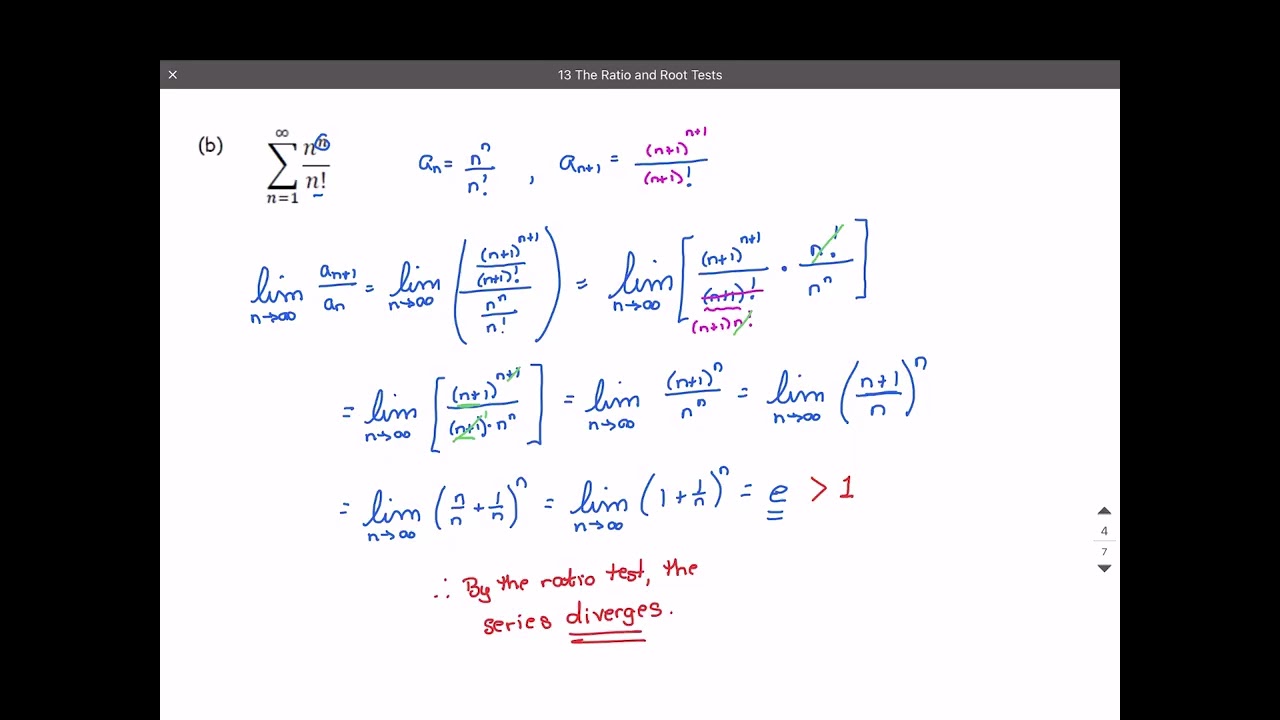 × 13 The Ratio and Root Tests
(b) ∞ ∑ n=1 nⁿ/n! aₙ = nⁿ/n! , aₙ₊₁ = (n+1)ⁿ⁺¹/(n+1)!
lim n→∞ aₙ₊₁/aₙ = lim n→∞ ( (n+1)ⁿ⁺¹/(n+1)! / nⁿ/n! ) = lim n→∞ [ (n+1)ⁿ⁺¹/(n+1)! · n!/nⁿ ]
(n+1)n!
= lim n→∞ [ (n+1)ⁿ⁺¹/(n+1)¹·nⁿ ] = lim n→∞ (n+1)ⁿ/nⁿ = lim n→∞ ( n+1/n )ⁿ
= lim n→∞ ( n/n + 1/n )ⁿ = lim n→∞ ( 1 + 1/n )ⁿ = e > 1
4
7
∴ By the ratio test, the
series diverges.